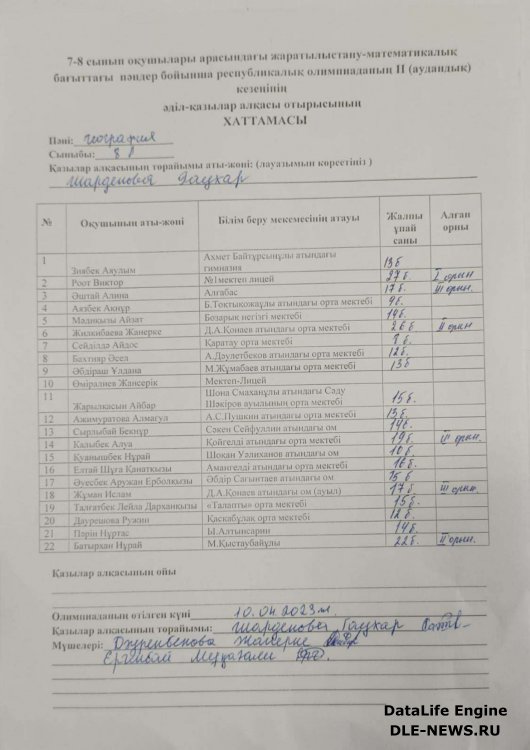 7-8 сынып оқушылары арасындағы жаратылыстану-математикалық
бағыттағы пәндер бойынша республикалық олимпиаданың II (аудандық)
кезеңінің
әділ-қазылар алқасы отырысының
ХАТТАМАСЫ
Пәні: география
Сыныбы: 8
Қазылар алқасының төрайымы аты-жөні: (лауазымын көрсетіңіз )
Шарденова Гаухар
№ Оқушының аты-жөні Білім беру мекемесінің атауы Жалпы ұпай саны Алған орны
1 Зиябек Аяулым Ахмет Байтұрсынұлы атындағы гимназия 13б
2 Роот Виктор №1мектеп лицей 27б. I орын
3 Әштай Алина Алғабас 17б. III орын.
4 Аязбек Ақнұр Б.Тоқтықожаұлы атындағы орта мектебі 9б.
5 Мәдиқызы Айзат Бозарық негізгі мектебі 14б.
6 Жилкибаева Жанерке Д.А.Қонаев атындағы орта мектебі 26б II орын
7 Сейділда Айдос Қаратау орта мектебі
8 Бахтияр Әсел А.Дәулетбеков атындағы орта мектебі 12б.
9 Әбдіраш Ұлдана М.Жұмабаев атындағы орта мектебі 13б
10 Өміралиев Жансерік Мектеп-Лицей
11 Жарылкасын Айбар Шона Смаханұлы атындағы Саду Шәкіров ауылының орта мектебі 15б.
12 Ажимуратова Алмагул А.С.Пушкин атындағы орта мектебі 13б.
13 Сырлыбай Бекнұр Сәкен Сейфуллин атындағы ом 14б.
14 Қалыбек Алуа Қойгелді атындағы орта мектебі 19б. орын.
15 Қуанышбек Нұрай Шоқан Уәлиханов атындағы ом 10б.
16 Елтай Шұға Қанатқызы Амангелді атындағы орта мектебі 16б.
17 Әуесбек Аружан Ерболқызы Әбдір Сағынтаев атындағы ом б
18 Жұман Ислам Д.А.Қонаев атындағы ом (ауыл) 17б III орын.
19 Талғатбек Лейла Дарханқызы «Талапты» орта мектебі 15б.
20 Даурешова Ружин Қасқабұлақ орта мектебі 12б.
21 Пәрін Нұртас Ы.Алтынсарин 14б.
22 Батырхан Нұрай М.Қыстаубайұлы 22б. II орын.
Қазылар алқасының ойы
Олимпиаданың өтілген күні 10.04.2023ж.
Қазылар алқасының төрайымы: Шарденова Гаухар
Мүшелері:
DataLife Engine
DLE-NEWS.RU